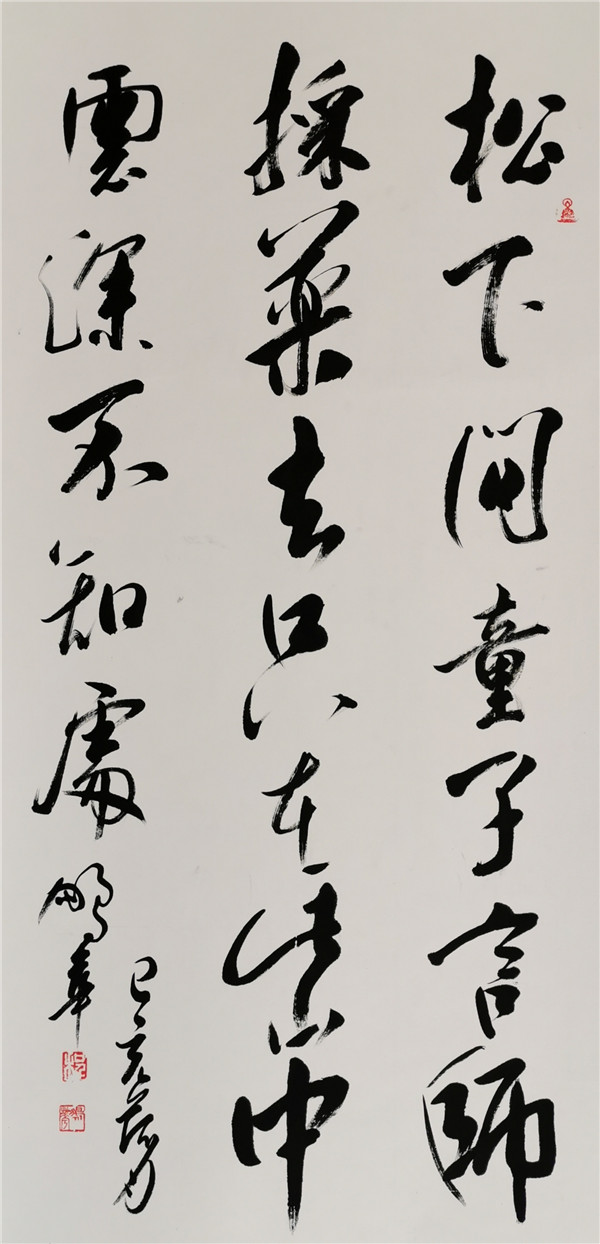 松下問童子言師
採藥去只在此山中
雲深不知處鵬
己亥